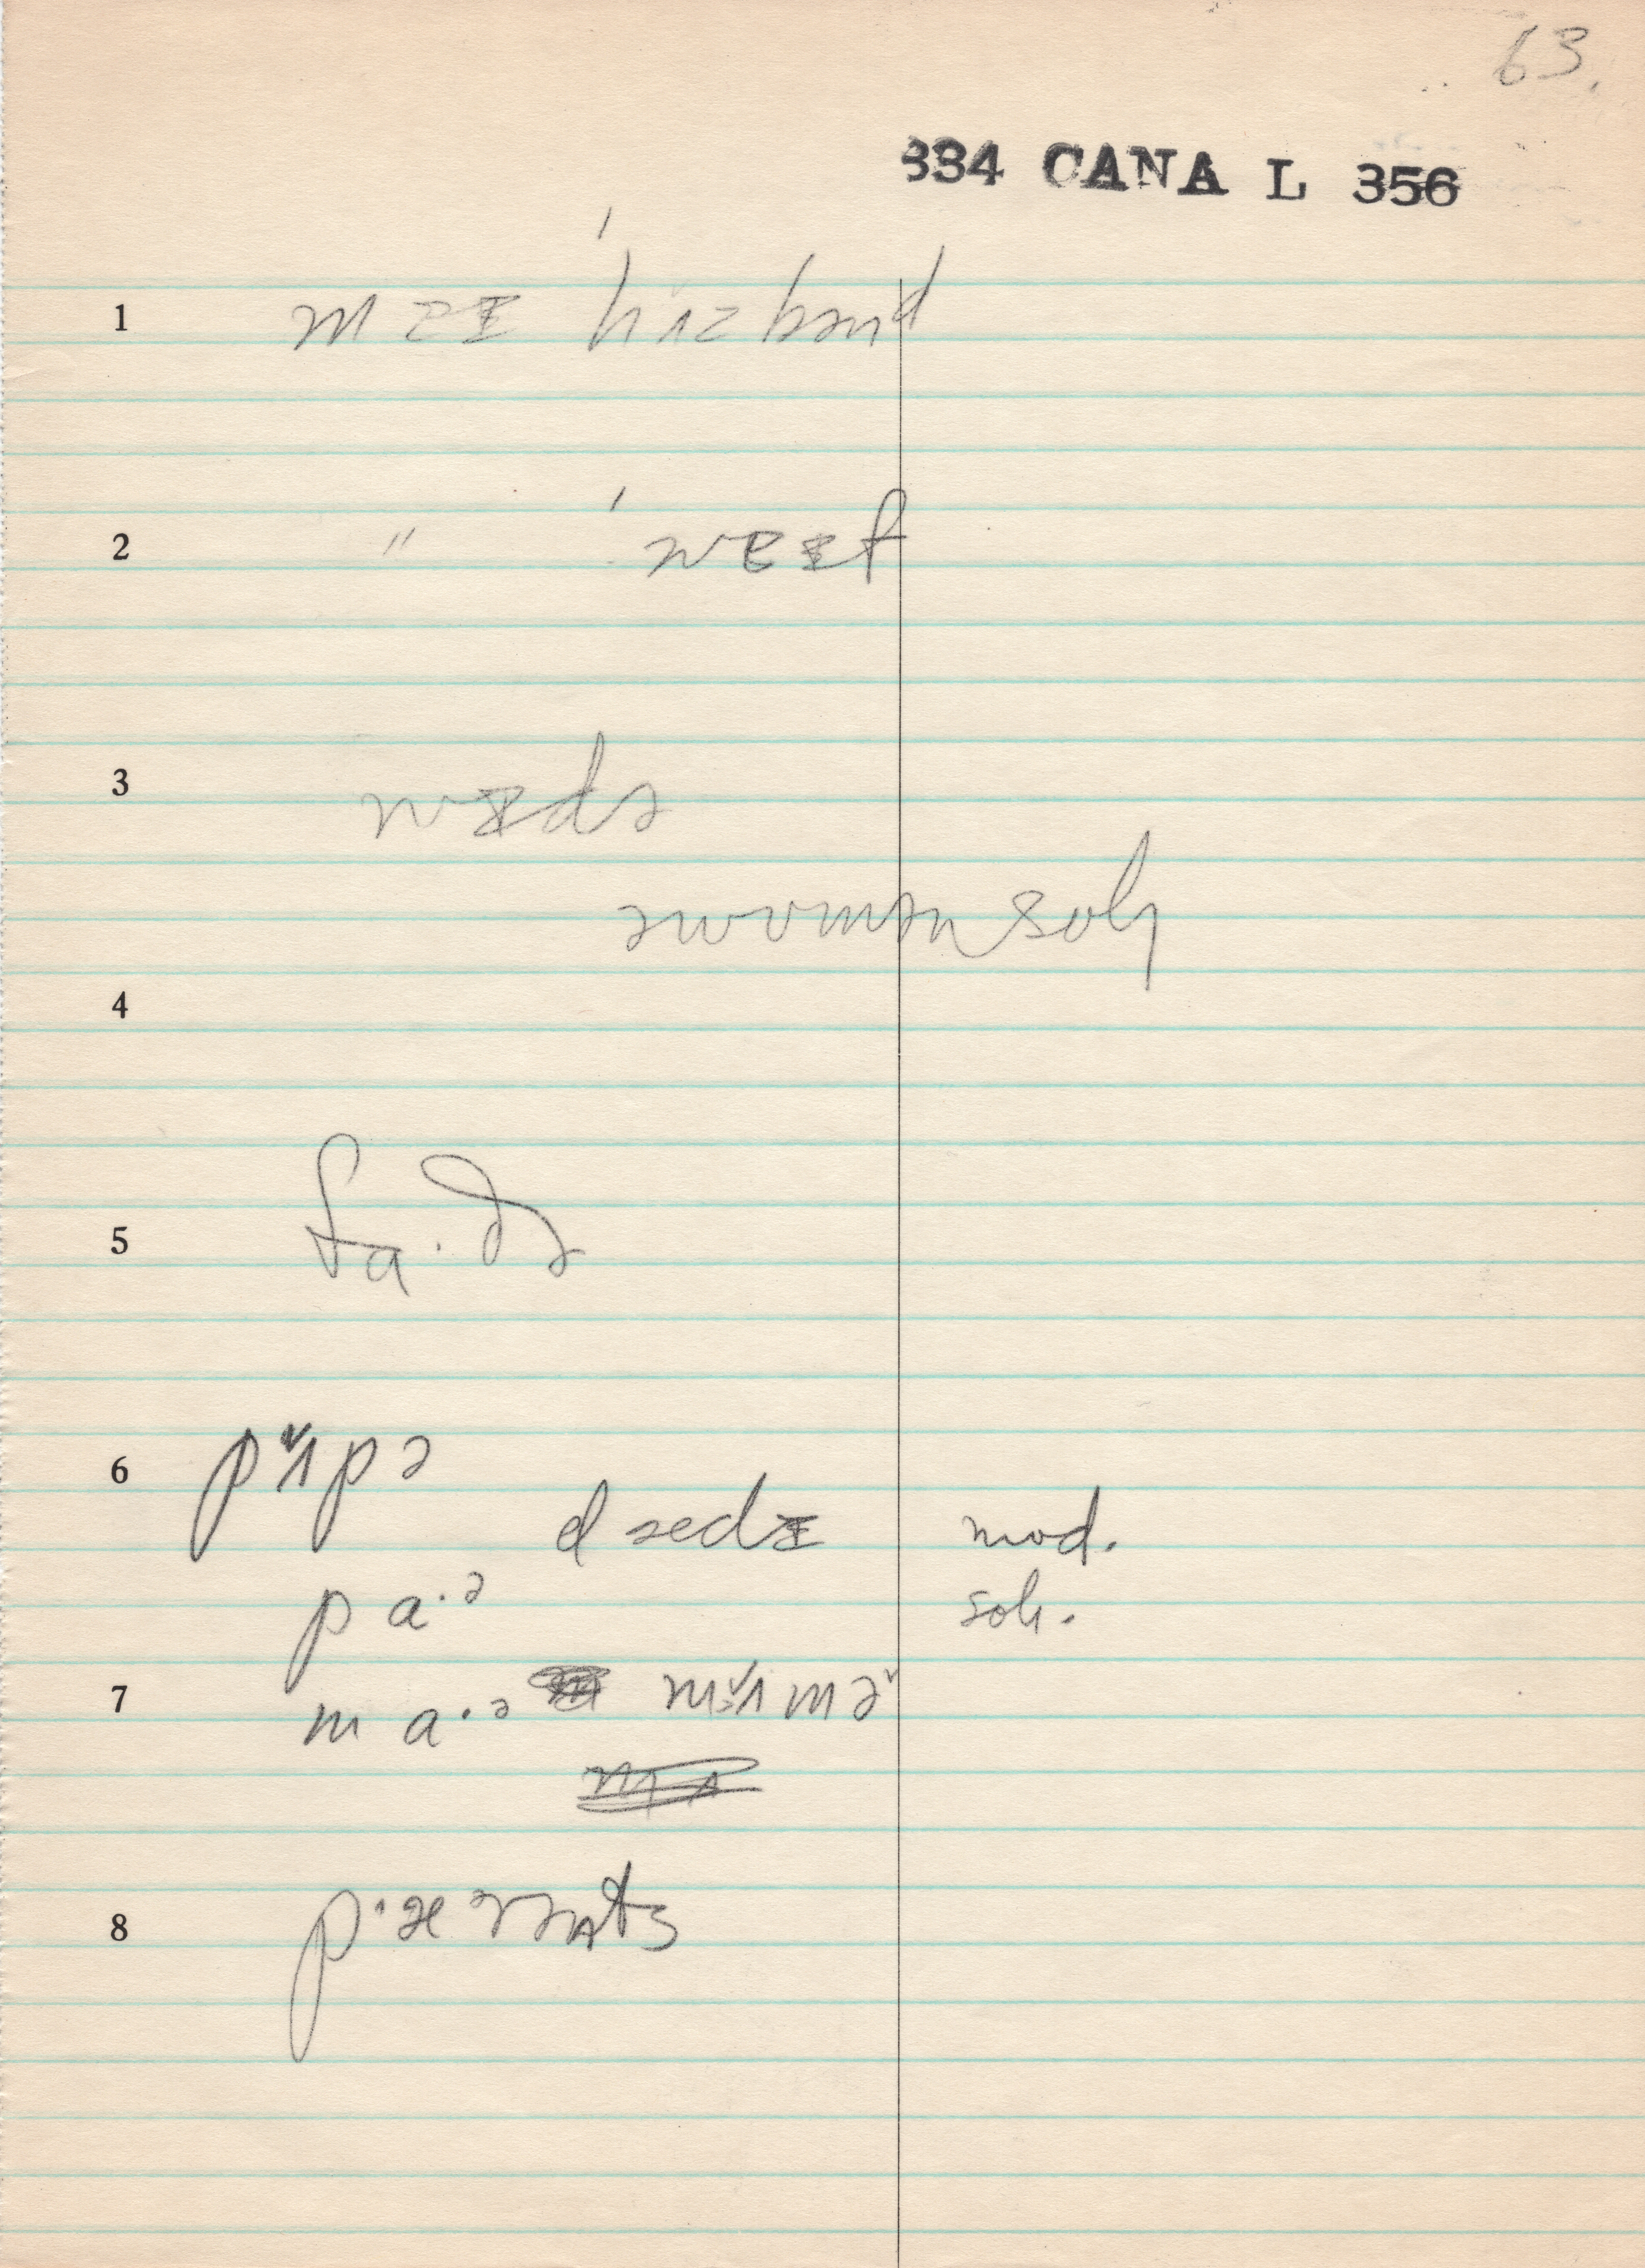 63.
334 CANA L 356
1 mɐɪ 'hʌzbənd
2 " 'wɐɪf
3 wɪdə
əwʊmən soly
4
5 fa·ðə
6 pʌ̌pə
dædɪ mod.
pa·ə soly.
7 ma·ə mʌ̌mə̌
8 p·æərənts